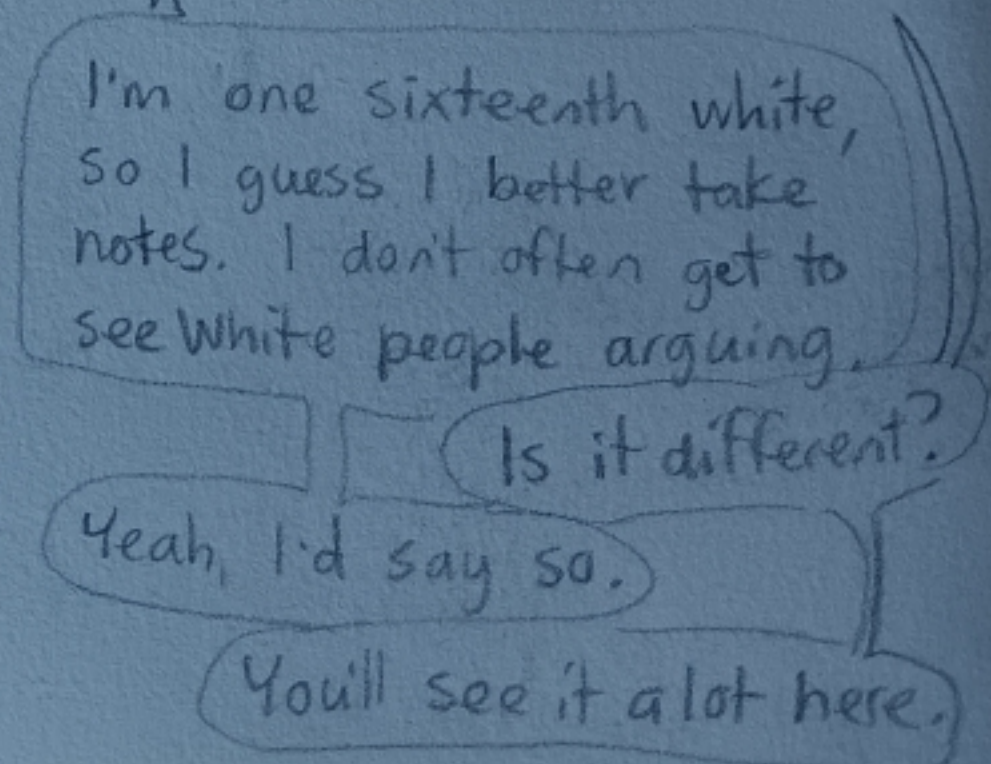 I'm one sixteenth white,
so I guess I better take
notes. I don't often get to
see White people arguing.
Is it different?
Yeah, I'd say so.
You'll see it a lot here.